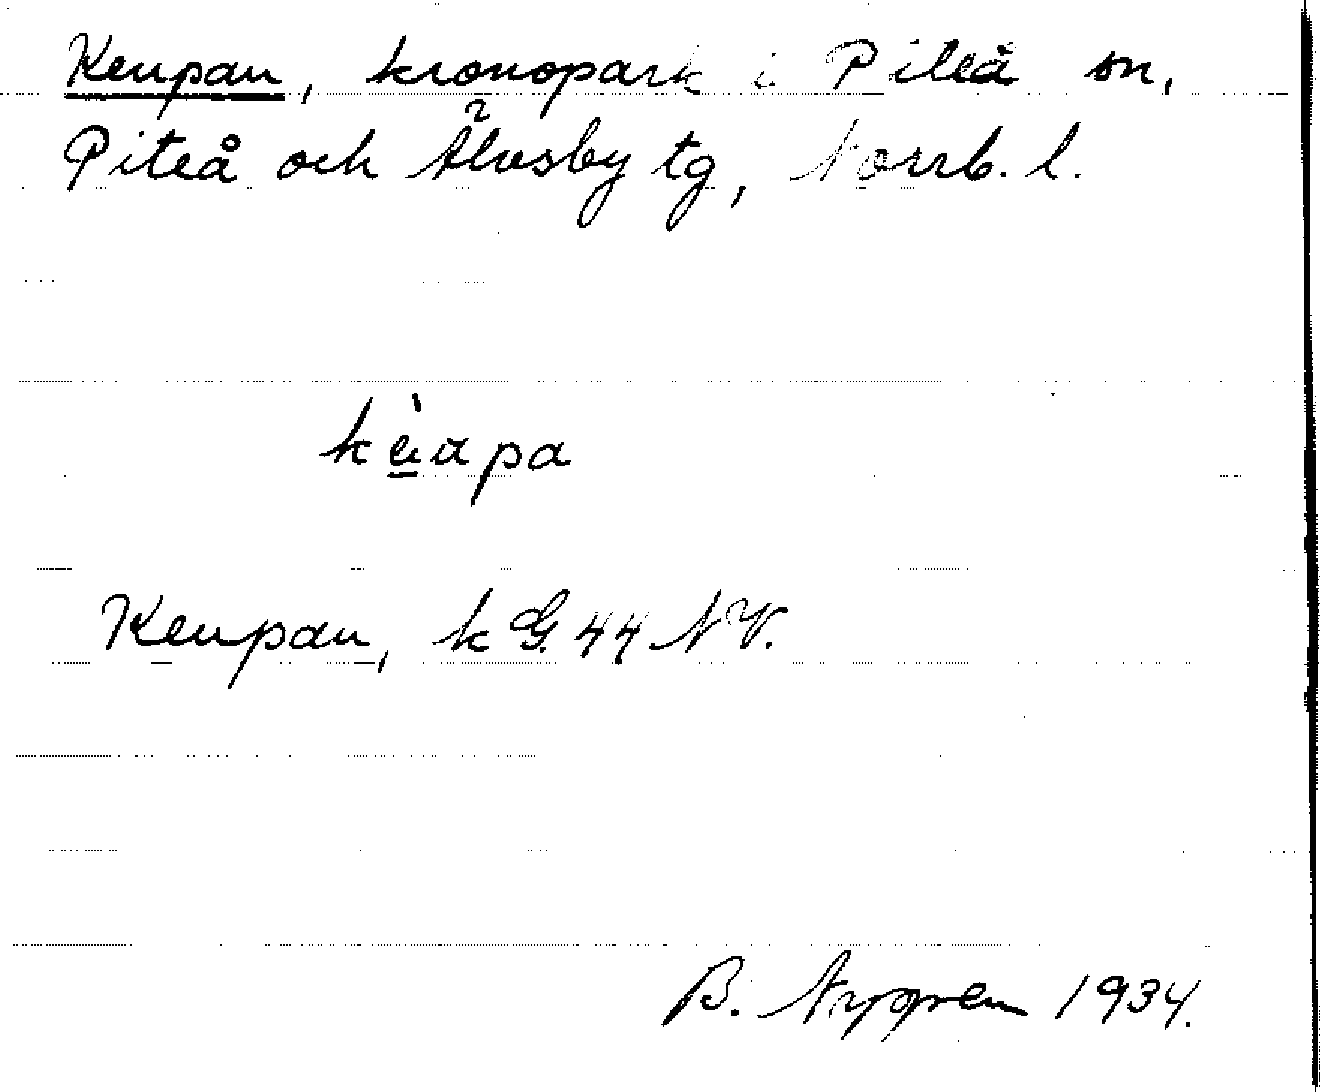 Keupan, kronopark i Piteå sn,
Piteå och Älvsby tg, Norrb. l.
Keupan, k G. 44 NV.
B. Nygren 1934.